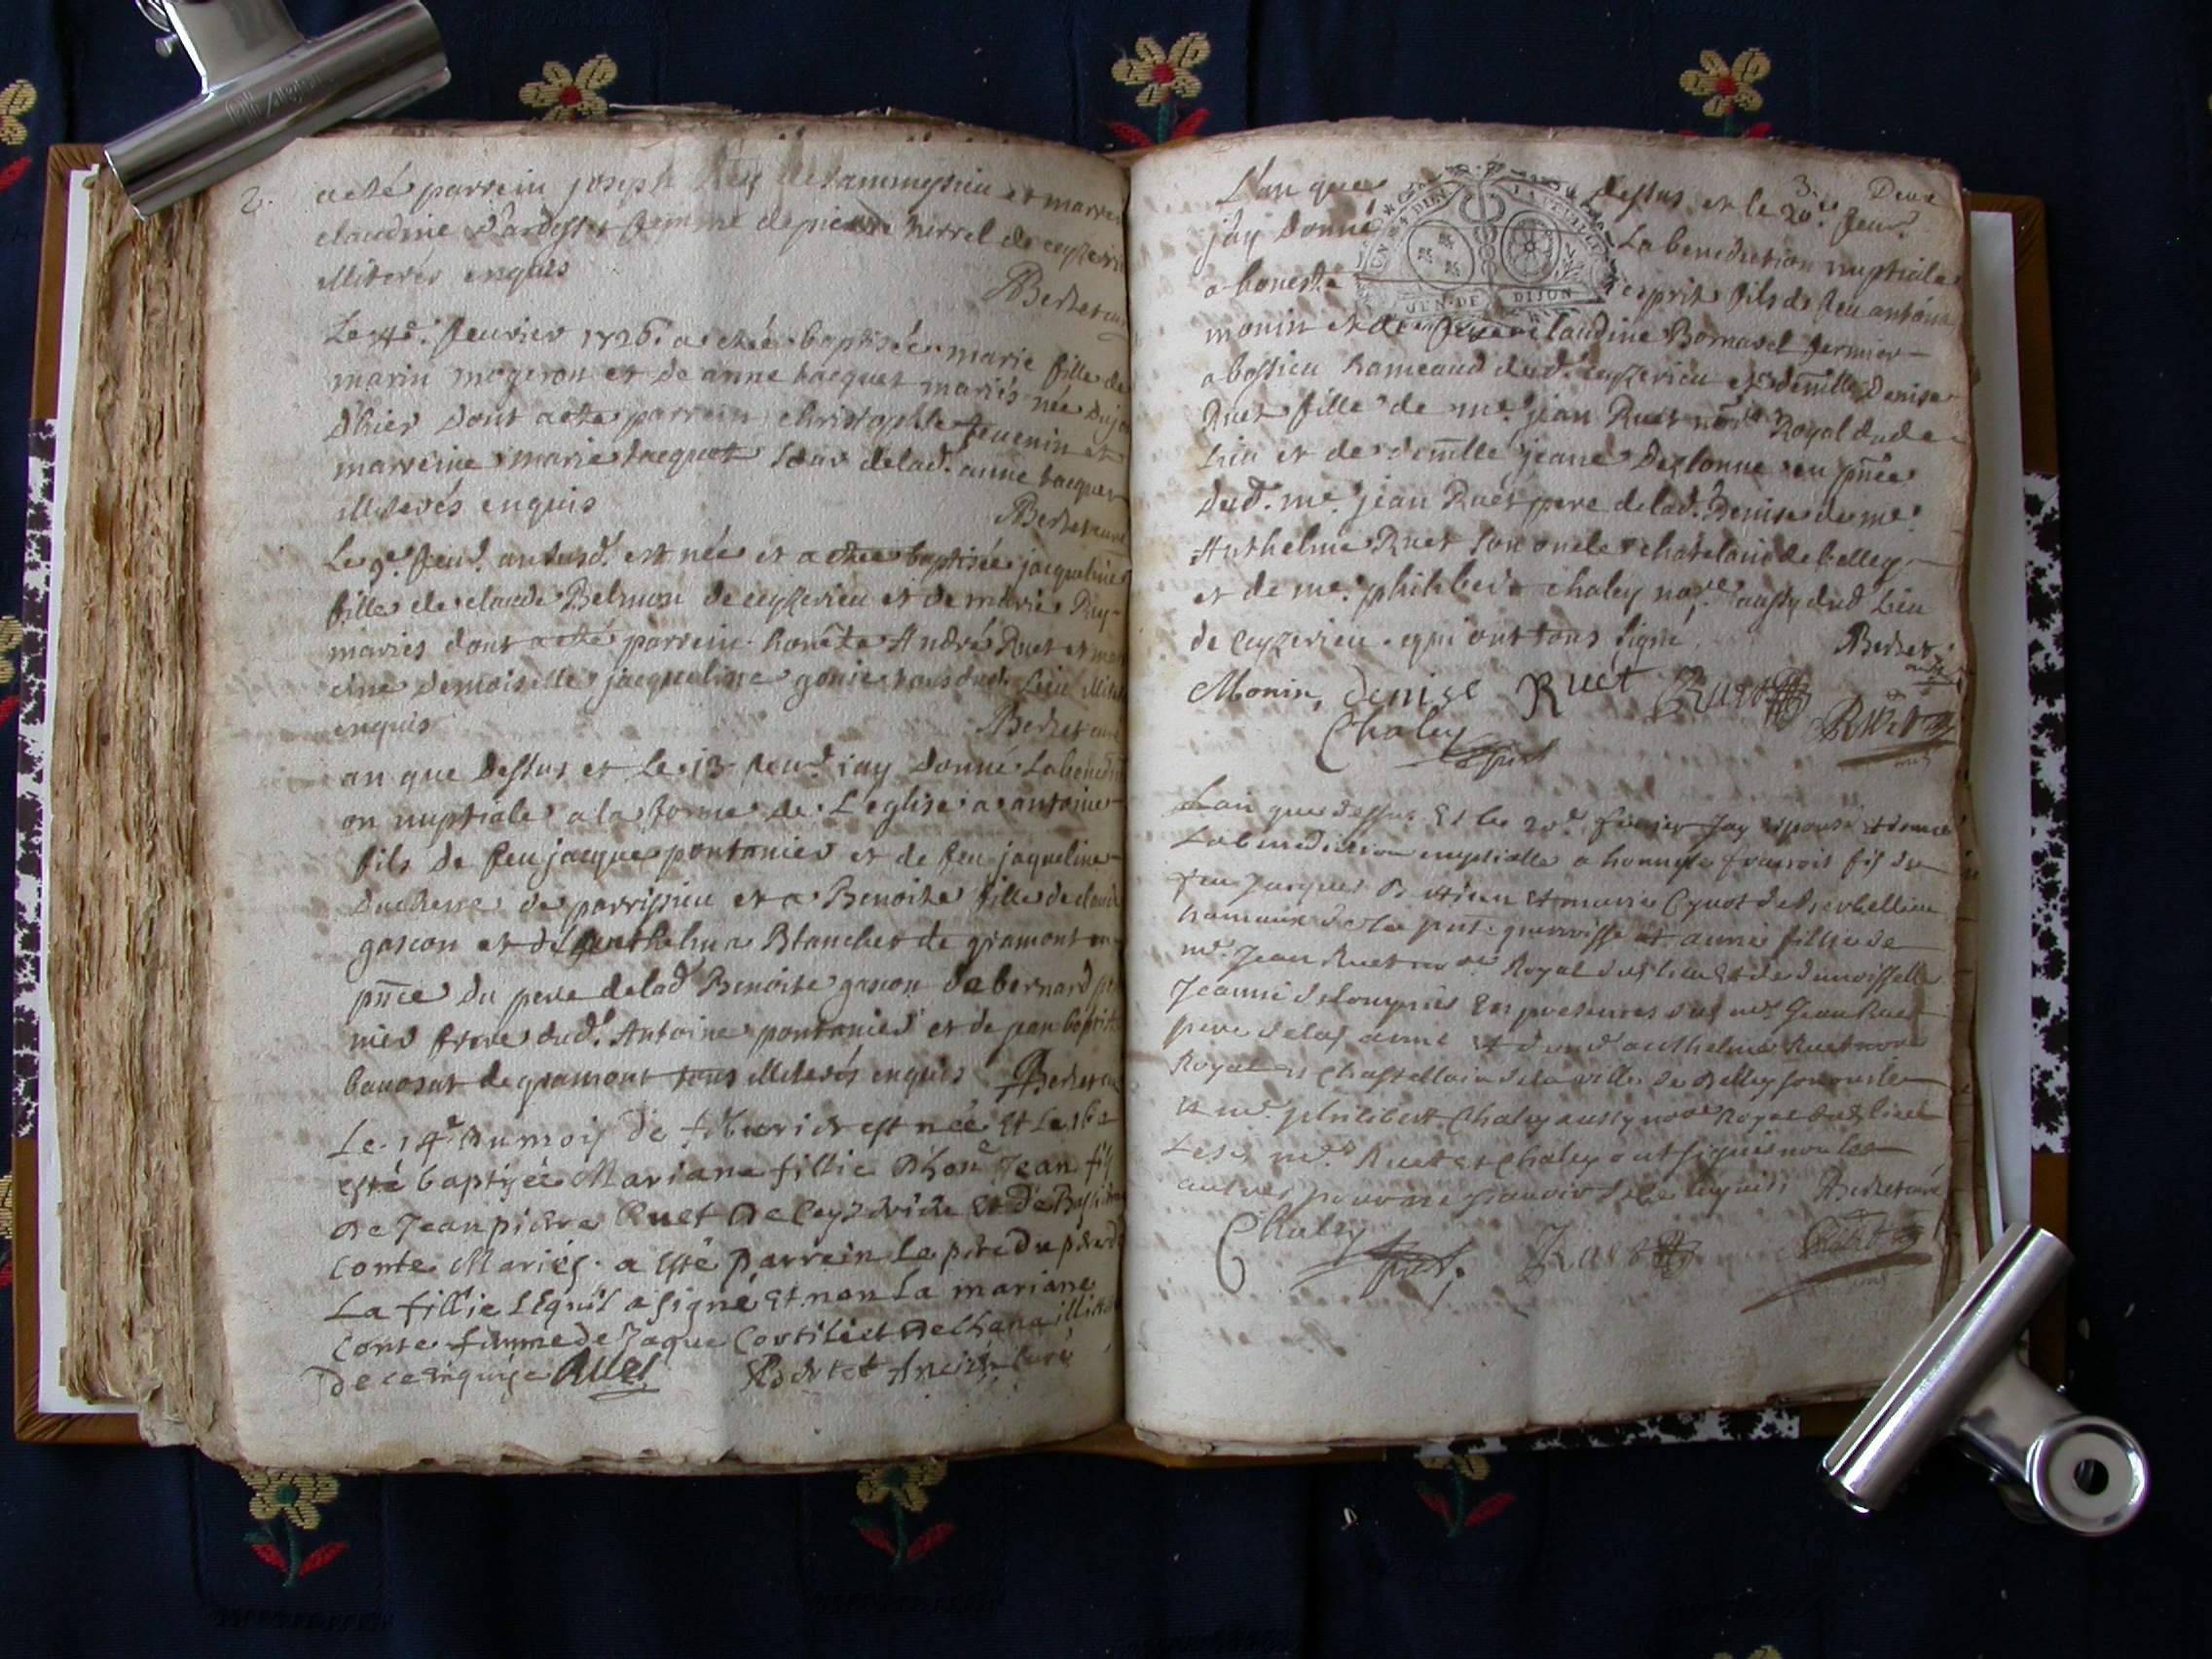 2.
a eté parrein joseph de sammeysieu et marre
claudine femme de pierre de ceyzerie
illiterés enquis
Berthet curé
Le 4e. feuvrier 1726. a etée baptisée marie fille de
marin mogeron et de anne tacquet mariés née du jo
d'hier dont a eté parrein christophle feuenin et
marreine marie tacquet soeur de lad. anne tacquet
illiterés enquis
Berthet curé
Le 9e. feur. an susd. est née et a etée baptisée jacqueline
fille de claude Belmon de ceyzerieu et de marie Ruy
mariés dont a eté parrein honete André Ruet et ma
eine demoiselle jacqueline gonie tous dud. Lieu illit
enquis
Berthet curé
an que dessus et le 13 feur. jay donné La benedicti
on nuptiale a la forme de L'eglise a antoine
fils de feu jacque pontanier et de feu jaqueline
Duchesne de parrissieu et a Benoite fille de claude
gascon et de anthelma Blanchet de gramont en
pnce du pere de lad. Benoite gascon de bernard po
nier frere dud. Antoine pontanier et de jean baptist
bauosat de gramont tous illiterés enquis Berthet cu
Le 14e. du mois de feburier est née et Le 16e
esté baptisée Mariane fillie d'hon. Jean fis
De Jean pierre Ruet De Ceyzerieu Et De
Conte Mariés. a esté parrein Le pere du pere de
La fillie Lequil a signé Et non La mariane
Conte femme de Jaque Cortilict De illit
De ce enquise Ruet Berthet Ancien Curé
3. Deux
L'an que dessus et le 20e. feur.
jay donné La benediction nuptiale
a honeste esprit fils de feu antoine
monin et de claudine Bornasel fermier
a bossieu hameaud dud. ceyzerieu et a demlle Denise
Ruet fille de me. jean Ruet nore Royal dud.
Lieu et de demlle jeane Deslonne en pnce
dud. me. jean Ruet pere de lad. Denise de me.
Anthelme Ruet son oncle chatelain de belley
et de me. philibert chaley nore. aussy dud. Lieu
de ceyzerieu qui ont tous signé.
Berthet curé
GEN. DE DIJON
Monin, denise Ruet Ruet
Chaley Ruet
Lan que dessus Et le 20e. feurier Jay epousé et donné
La benediction nuptialle a honneste francois fis de
feu Jacques et marie Cynot de
hameaux de la pnte parroisse et annie fillie de
me. Jean Ruet nore Royal dud lieu Et de demoisselle
Jeanne En presences dud me. Jean Ruet
pere de lad annie Et de me anthelme Ruet nore
Royal et Chastellain de la ville de Belley son oncle
et me. philibert Chaley aussy nore Royal dud lieu
Lesd me. Ruet et Chaley ont signé non les
autres pour ne scavoir de ce enquis, Berthet curé
Chaley Ruet